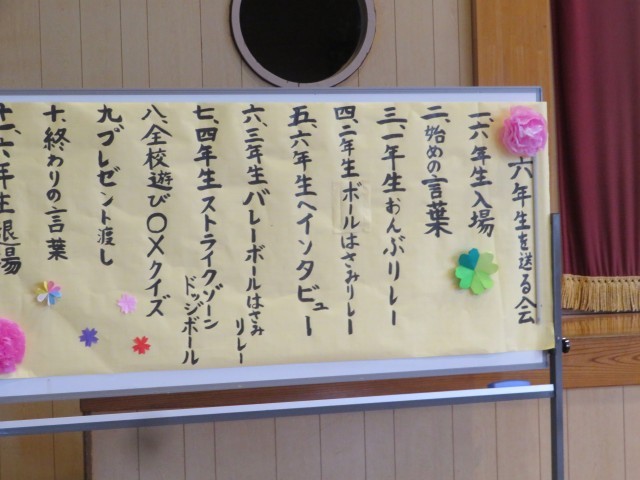 六年生を送る会
一、六年生入場
二、始めの言葉
三、一年生おんぶリレー
四、二年生ボールはさみリレー
五、六年生へインタビュー
六、三年生バレーボールはさみ
リレー
七、四年生ストライクゾーン
ドッジボール
八、全校遊び〇×クイズ
九、プレゼント渡し
十、終わりの言葉
十一、六年生退場